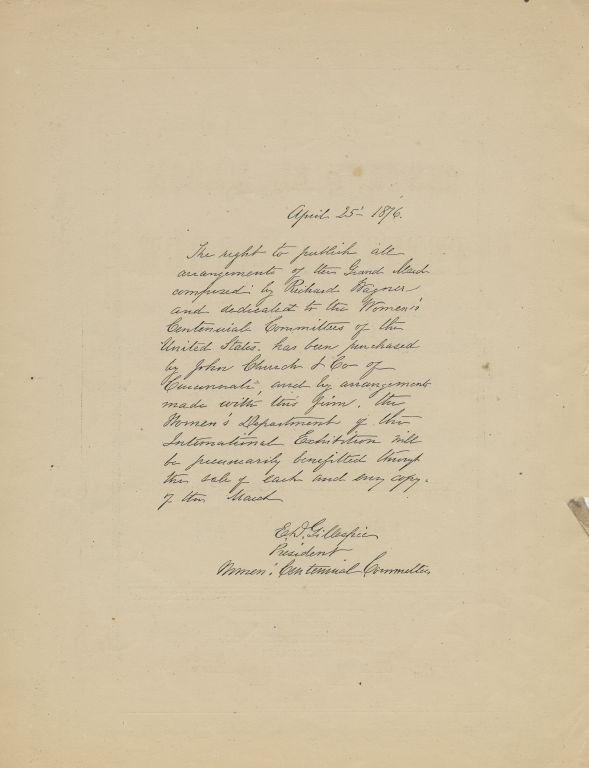 April 25th 1876.
The right to publish all
arrangements of the Grand March
composed by Richard Wagner
and dedicated to the Women's
Centennial Committees of the
United States. has been purchased
by John Church & Co of
Cincinnati and by arrangements
made with this firm, the
Women's Department of the
International Exhibition will
be pecuniarily benefitted through
the sale of each and every copy.
of this March
E. D. Gillespie
President
Women's Centennial Committee